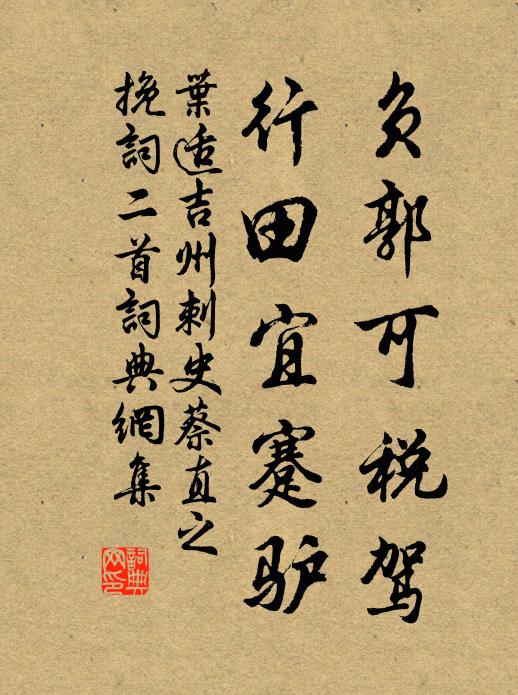 负郭可税驾
行田宜蹇驴
葉适吉州刺史蔡直之
挽詞二首詞典網集
詞典
网印